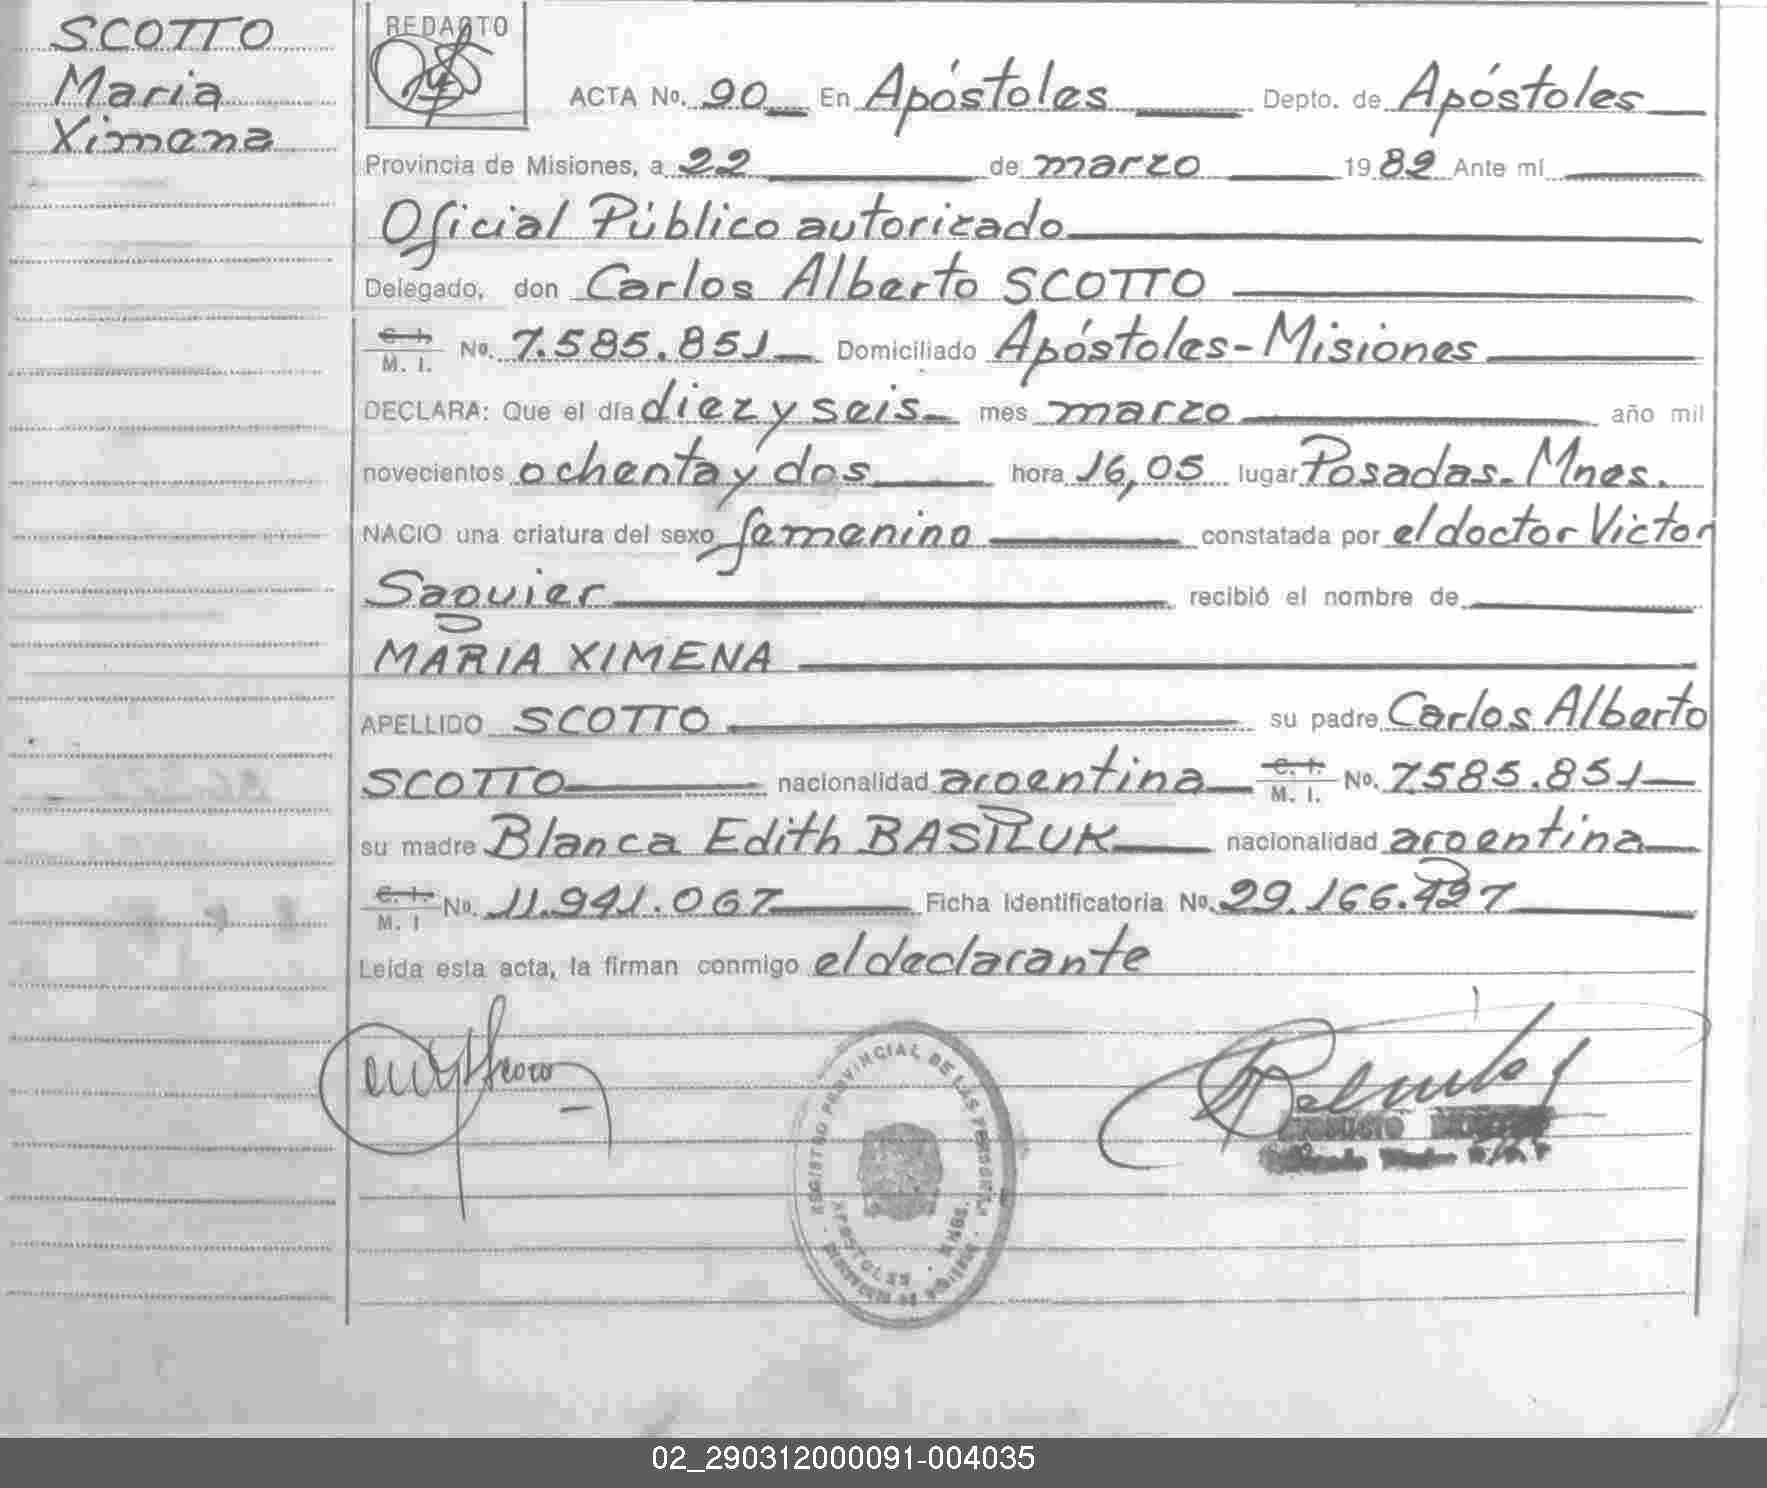 SCOTTO
Maria
Ximena
REDACTO
ACTA No. 90 En Apóstoles Depto. de Apóstoles
Provincia de Misiones, a 22 de marzo 1982 Ante mí
Oficial Público autorizado
Delegado, don Carlos Alberto SCOTTO
C. I. M. I. No. 7.585.851 Domiciliado Apóstoles-Misiones
DECLARA: Que el día diez y seis mes marzo año mil
novecientos ochenta y dos hora 16,05 lugar Posadas-Mnes.
NACIO una criatura del sexo femenino constatada por el doctor Victor
Saguier recibió el nombre de
MARIA XIMENA
APELLIDO SCOTTO su padre Carlos Alberto
SCOTTO nacionalidad argentina C. I. M. I. No. 7.585.851
su madre Blanca Edith BASILUK nacionalidad argentina
C. I. M. I No. 11.941.067 Ficha Identificatoria No. 29.166.427
Leída esta acta, la firman conmigo el declarante
REGISTRO PROVINCIAL DE LAS PERSONAS
APOSTOLES MNES.
02_290312000091-004035